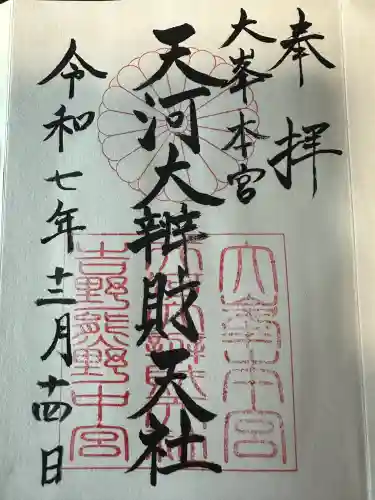 奉拝
大峯本宮
天河大辨財天社
令和七年十二月十四日
大峯本宮
天河大辨財天社
吉野熊野中宮